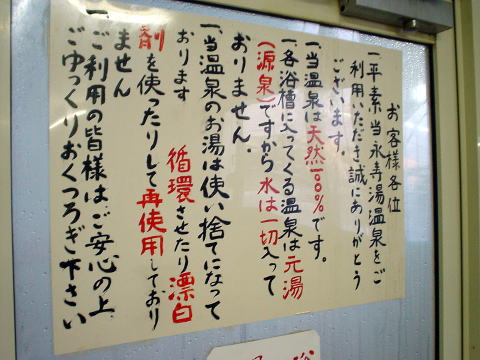 お客様各位
一、平素当永寿湯温泉をご
利用いただき誠にありがとう
ございます。
一、当温泉は天然一〇〇％です。
一、各浴槽に入ってくる温泉は元湯
(源泉)ですから水は一切入って
おりません。
一、当温泉のお湯は使い捨てになって
おります 循環させたり漂白
剤を使ったりして再使用しており
ません
一、ご利用の皆様はご安心の上、
ごゆっくりおくつろぎ下さい